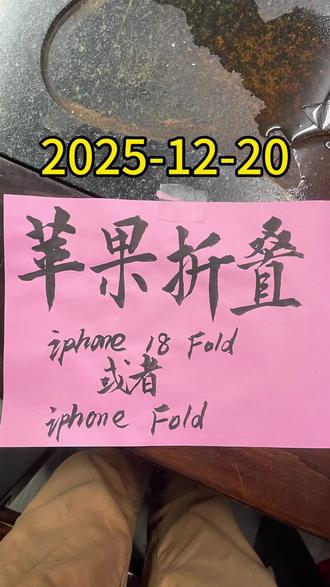 2025-12-20
苹果折叠
iphone 18 Fold
或者
iphone Fold